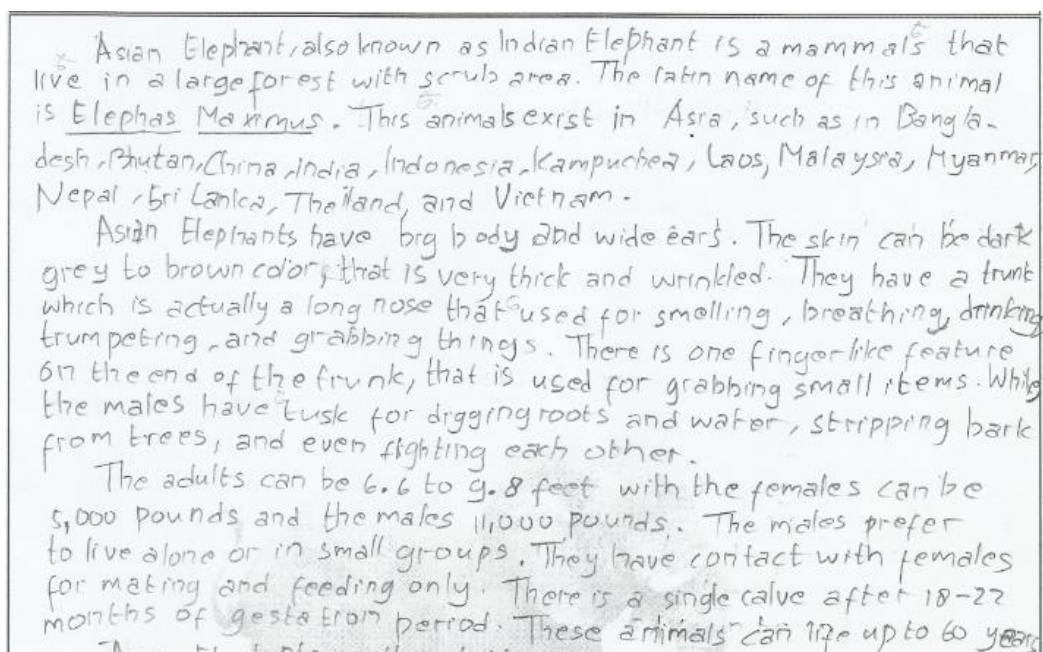 Asian Elephant, also known as Indian Elephant is a mammals that
live in a large forest with scrub area. The latin name of this animal
is Elephas Maximus. This animals exist in Asia, such as in Bangla-
desh, Bhutan, China, India, Indonesia, Kampuchea, Laos, Malaysia, Myanmar,
Nepal, Sri Lanka, Thailand, and Vietnam.
Asian Elephants have big body and wide ears. The skin can be dark
grey to brown color, that is very thick and wrinkled. They have a trunk
which is actually a long nose that used for smelling, breathing, drinking,
trumpeting, and grabbing things. There is one fingerlike feature
on the end of the trunk, that is used for grabbing small items. While
the males have tusk for digging roots and water, stripping bark
from trees, and even fighting each other.
The adults can be 6.6 to 9.8 feet with the females can be
5,000 pounds and the males 11,000 pounds. The males prefer
to live alone or in small groups. They have contact with females
for mating and feeding only. There is a single calve after 18-22
months of gestation period. These animals can live up to 60 years